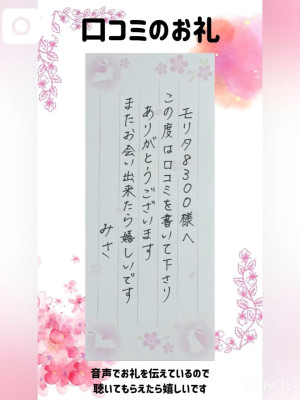 口コミのお礼
モリタ8300様へ
この度は口コミを書いて下さり
ありがとうございます
またお会い出来たら嬉しいです
みさ
音声でお礼を伝えているので
聴いてもらえたら嬉しいです